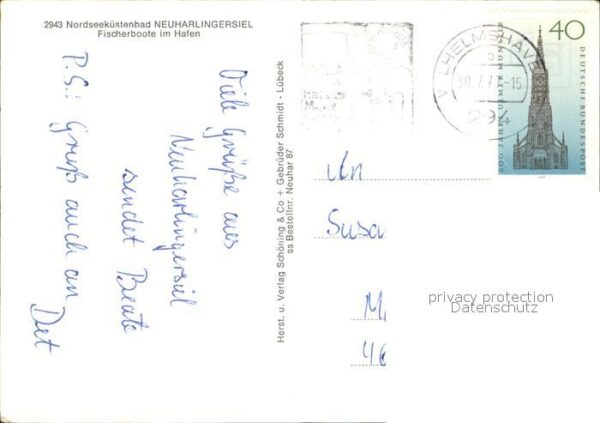 2943 Nordseeküstenbad NEUHARLINGERSIEL
Fischerboote im Hafen
Viele Grüße aus
Neuharlingersiel
sendet Beate
P.S.: Gruß auch an
Det
Herst. u. Verlag Schöning & Co + Gebrüder Schmidt - Lübeck
ss Bestellnr. Neuhar 87
WILHELMSHAVEN
-15
294
40
DEUTSCHE BUNDESPOST
600 JAHRE ULMER MÜNSTER
An
Susa
M
privacy protection
Datenschutz